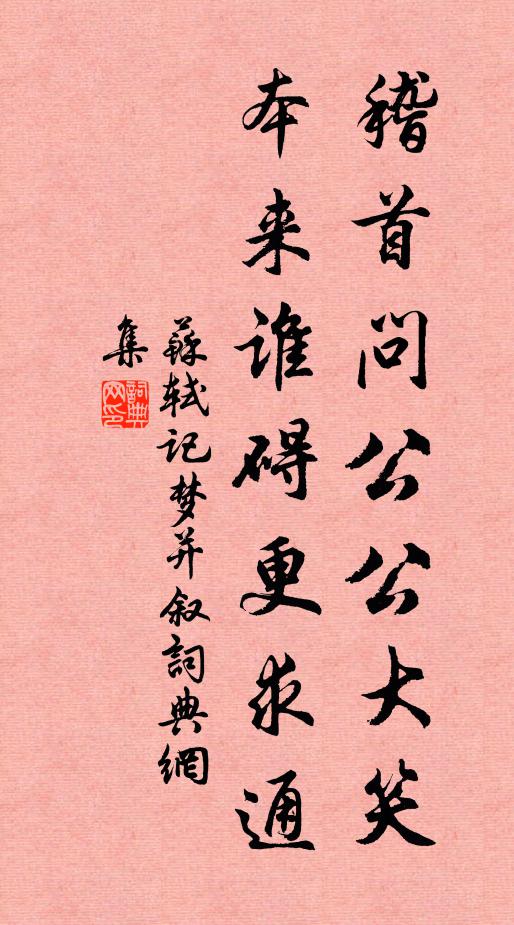 稽首问公公大笑
本来谁碍更求通
蘇轼记梦并叙詞典網
集
詞典网印